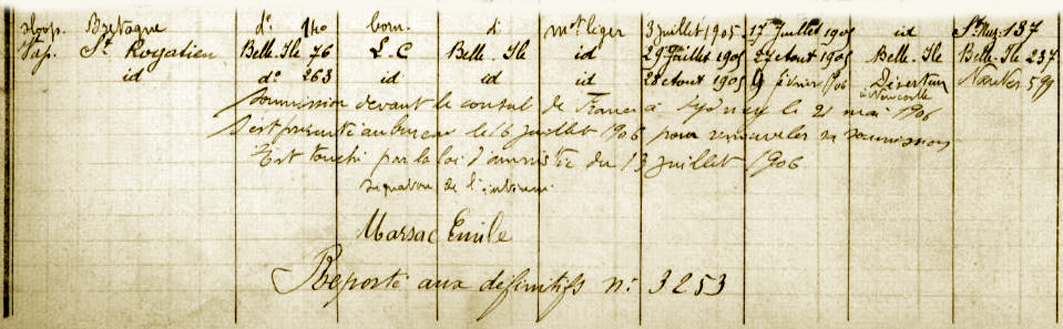 Sloop. Bretagne d° 140 born. d. mot leger 3 juillet 1905 17 Juillet 1905 id St Naz. 137
Vap. St Rogatien Belle-Ile 76 L.C Belle Ile id 29 Juillet 1905 27 Aout 1905 Belle-Ile Belle-Ile 237
id d° 263 id id id 28 Aout 1905 9 février 1906 Déserteur Nantes 599
à Newcastle
Soumission devant le consul de France à Sydney le 21 mai 1906
S'est présenté au bureau le 16 juillet 1906 pour renouveler sa soumission
Est touché par la loi d'amnistie du 13 juillet 1906
Signature de l'intéressé
Marsac Emile
Reporté aux définitifs n° 3253